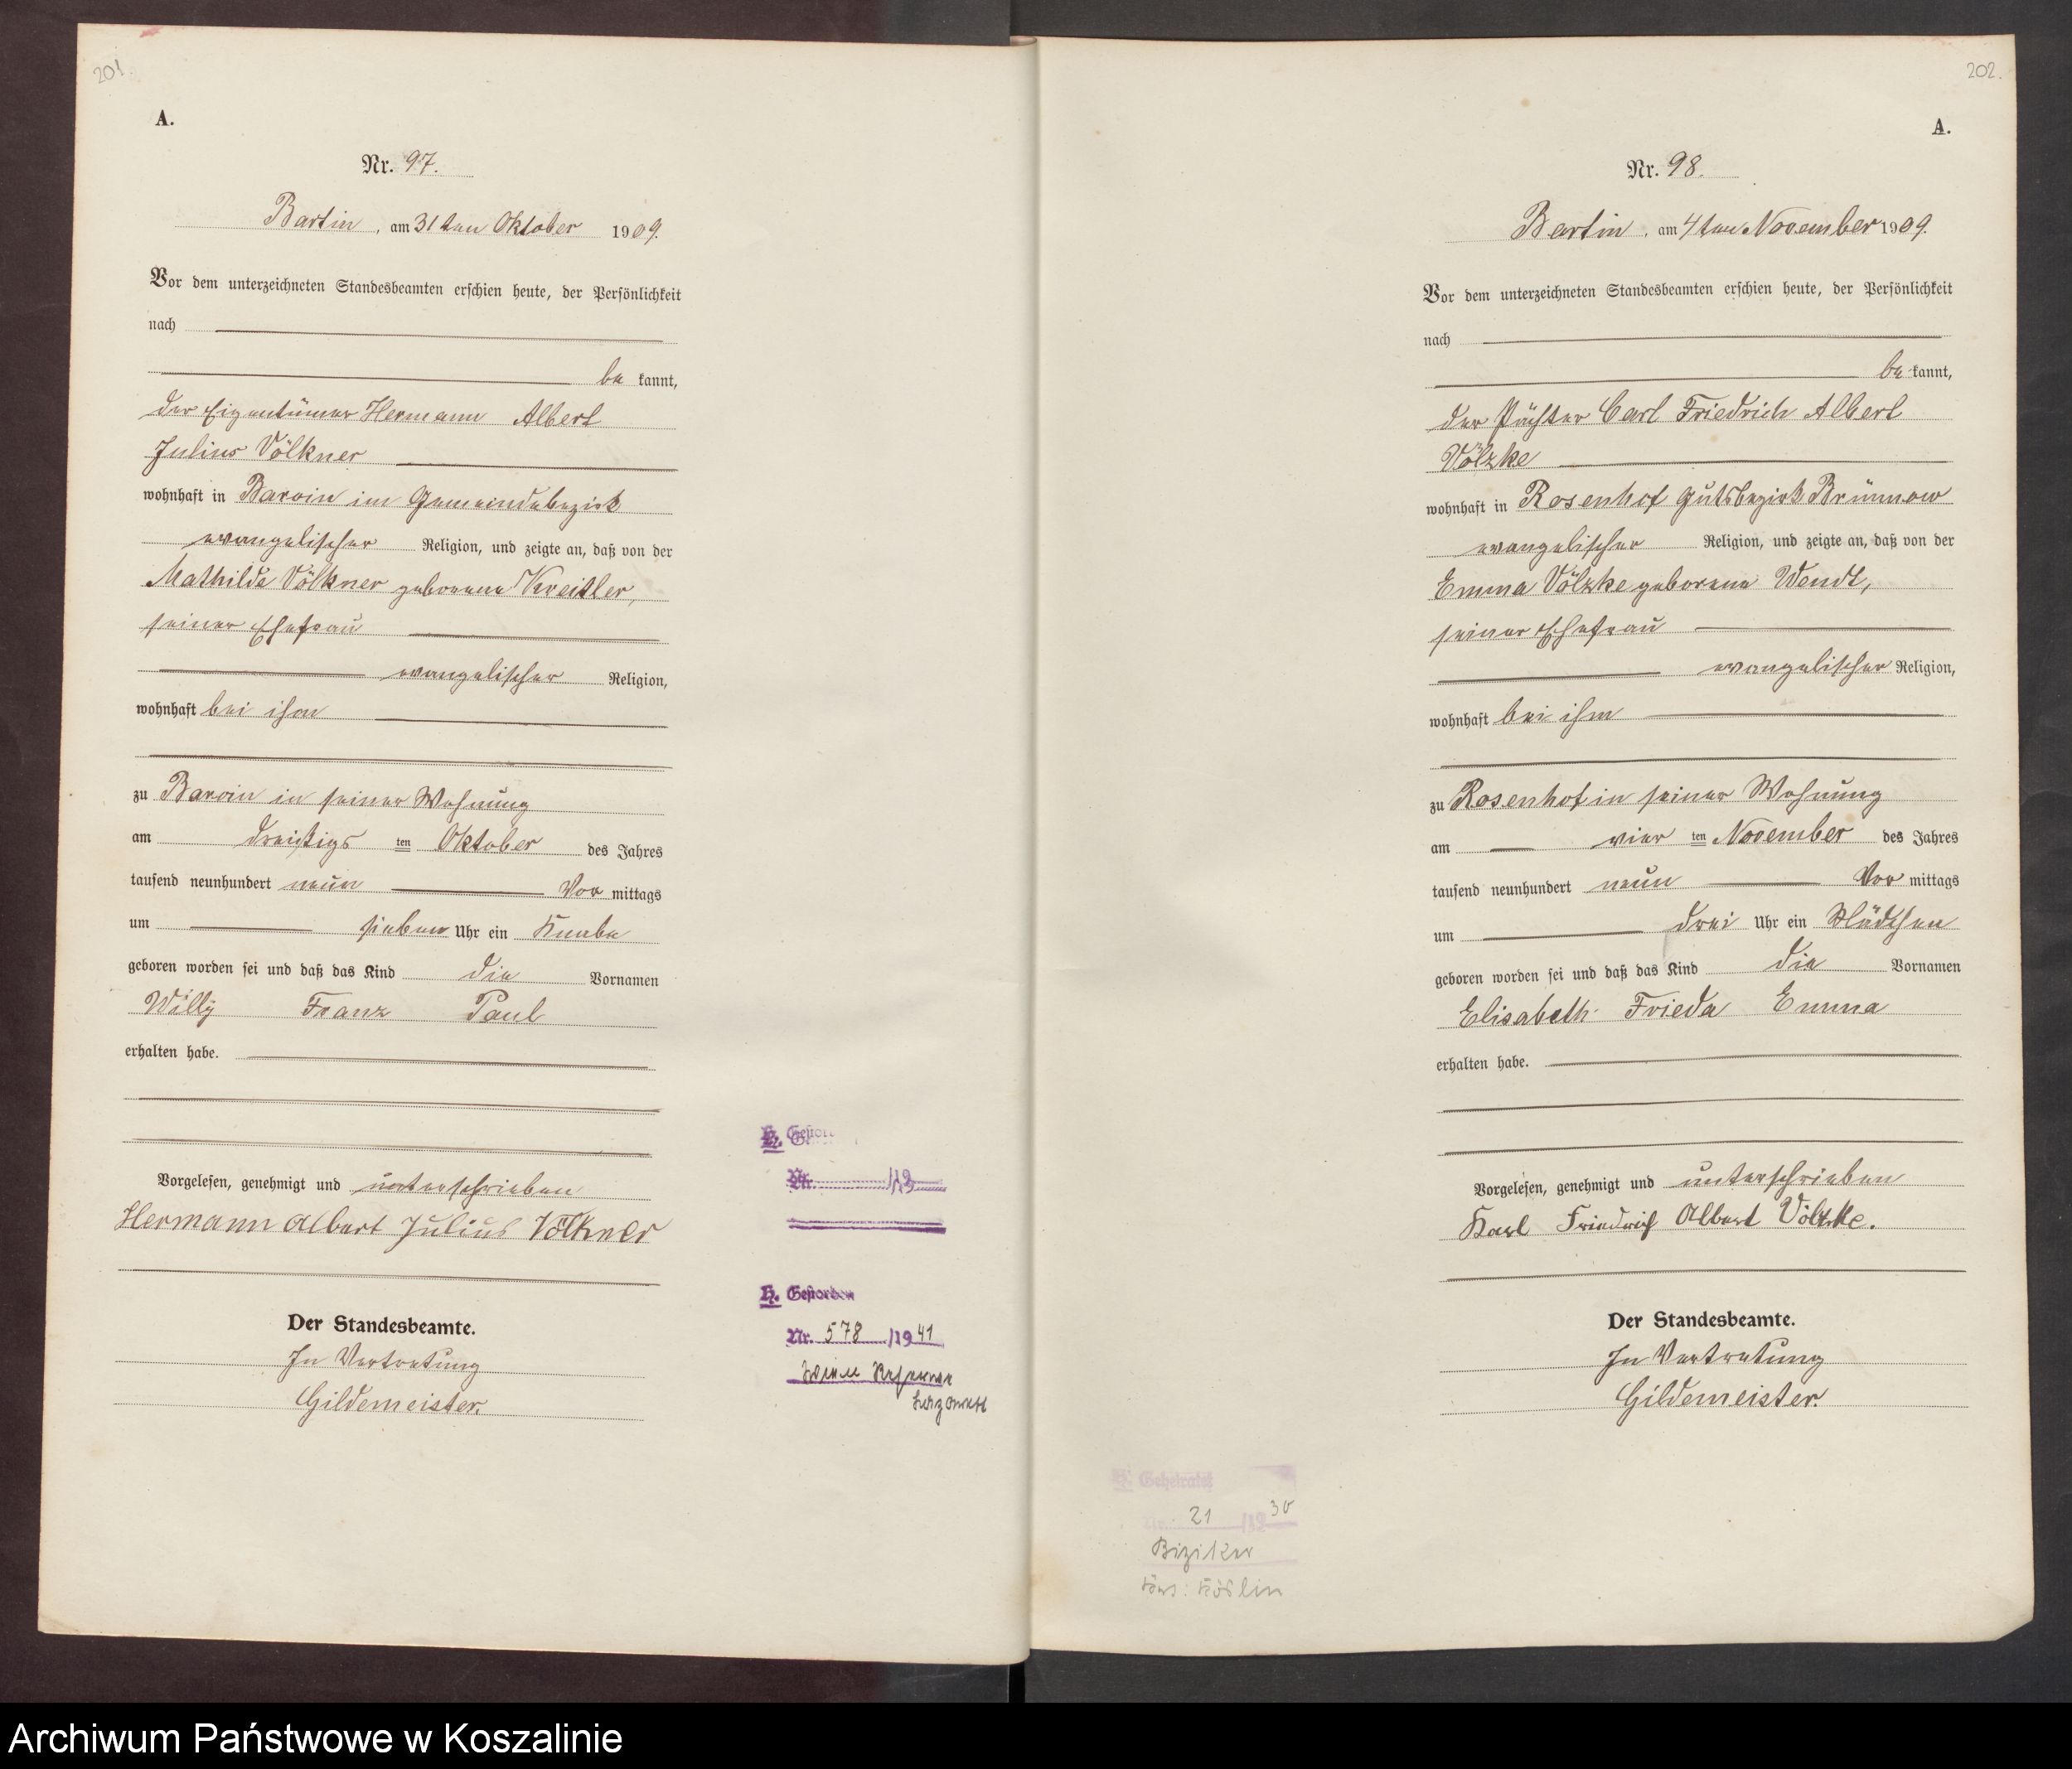 201.
A.
Nr. 97.
Bartin, am 31ten Oktober 1909.
Vor dem unterzeichneten Standesbeamten erschien heute, der Persönlichkeit
nach
be kannt,
der Eigentümer Hermann Albert
Julius Völkner
wohnhaft in Barvin im Gemeindebezirk
evangelischer Religion, und zeigte an, daß von der
Mathilde Völkner geborene Kreitler,
seiner Ehefrau
evangelischer Religion,
wohnhaft bei ihm
zu Barvin in seiner Wohnung
am dreißigs ten Oktober des Jahres
tausend neunhundert neun Vor mittags
um sieben Uhr ein Knabe
geboren worden sei und daß das Kind die Vornamen
Willy Franz Paul
erhalten habe.
Vorgelesen, genehmigt und unterschrieben
Hermann Albert Julius Völkner
Der Standesbeamte.
In Vertretung
Gildemeister.
Nr. /19
H. Gestorben
Nr. 578 /1941
202.
A.
Nr. 98.
Bartin, am 4ten November 1909.
Vor dem unterzeichneten Standesbeamten erschien heute, der Persönlichkeit
nach
be kannt,
der Pächter Carl Friedrich Albert
Völzke
wohnhaft in Rosenhof Gutsbezirk Brünnow
evangelischer Religion, und zeigte an, daß von der
Emma Völzke geborene Wendt,
seiner Ehefrau
evangelischer Religion,
wohnhaft bei ihm
zu Rosenhof in seiner Wohnung
am vier ten November des Jahres
tausend neunhundert neun Vor mittags
um drei Uhr ein Mädchen
geboren worden sei und daß das Kind die Vornamen
Elisabeth Frieda Emma
erhalten habe.
Vorgelesen, genehmigt und unterschrieben
Karl Friedrich Albert Völzke.
Der Standesbeamte.
In Vertretung
Gildemeister.
H. Geheiratet
Nr. 21 /1930
Biziker
Köslin
Archiwum Państwowe w Koszalinie